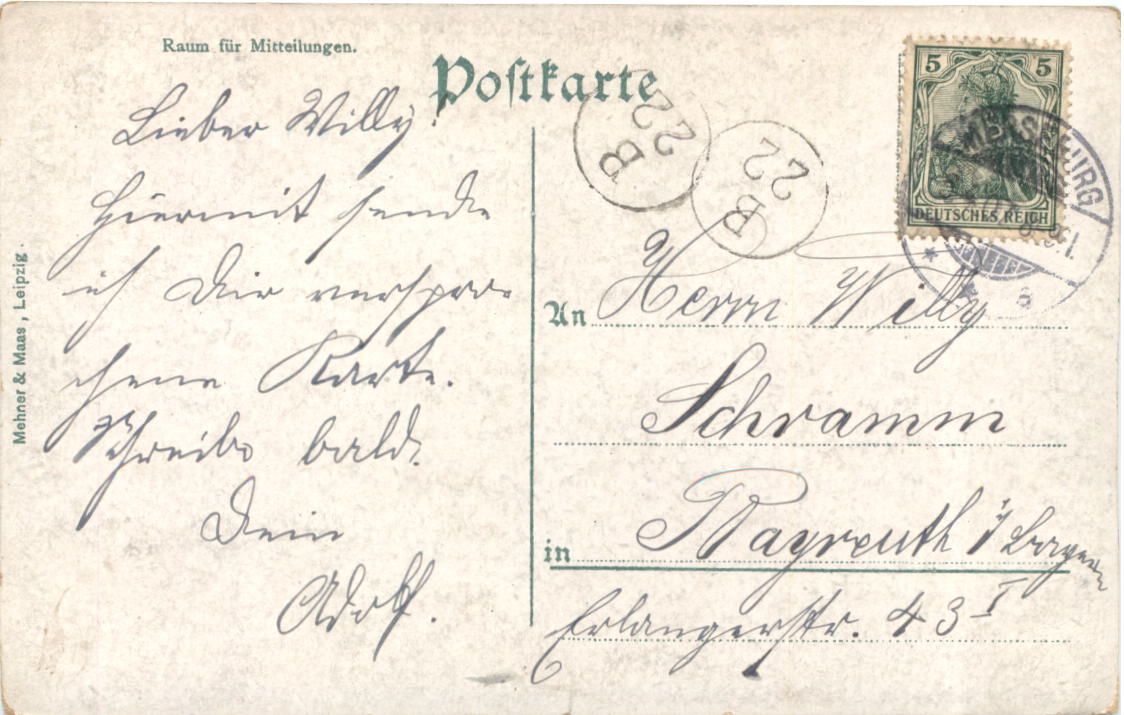 Raum für Mitteilungen.
Postkarte
Lieber Willy!
Hiermit sende
ich Dir verspro-
chene Karte.
Schreibe bald.
Dein
Adolf.
Mehner & Maas, Leipzig.
B 22
B 22
5 5
DEUTSCHES REICH
An Herrn Willy
Schramm
in Bayreuth i/Bayern
Erlangerstr. 43 I